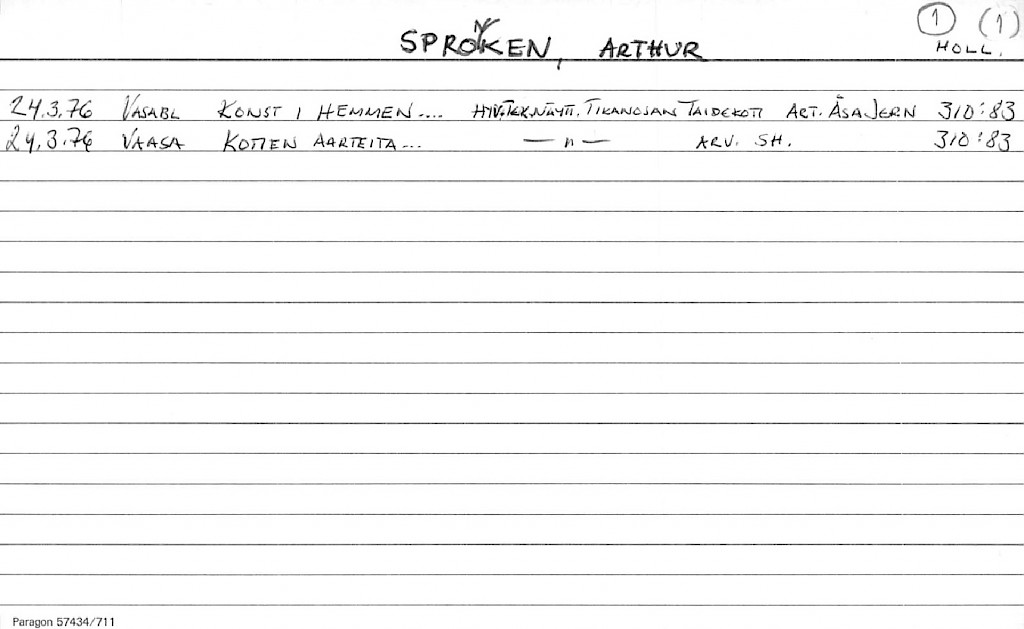 1 (1)
SPROŸKEN, ARTHUR HOLL.
24.3.76 VASABL KONST I HEMMEN.... HYV.TEK.NÄYTT. TIKANOJAN TAIDEKOTI ART. ÅSA JERN 310:83
24.3.76 VAASA KOTIEN AARTEITA... —n— ARV. SH. 310:83
Paragon 57434/711